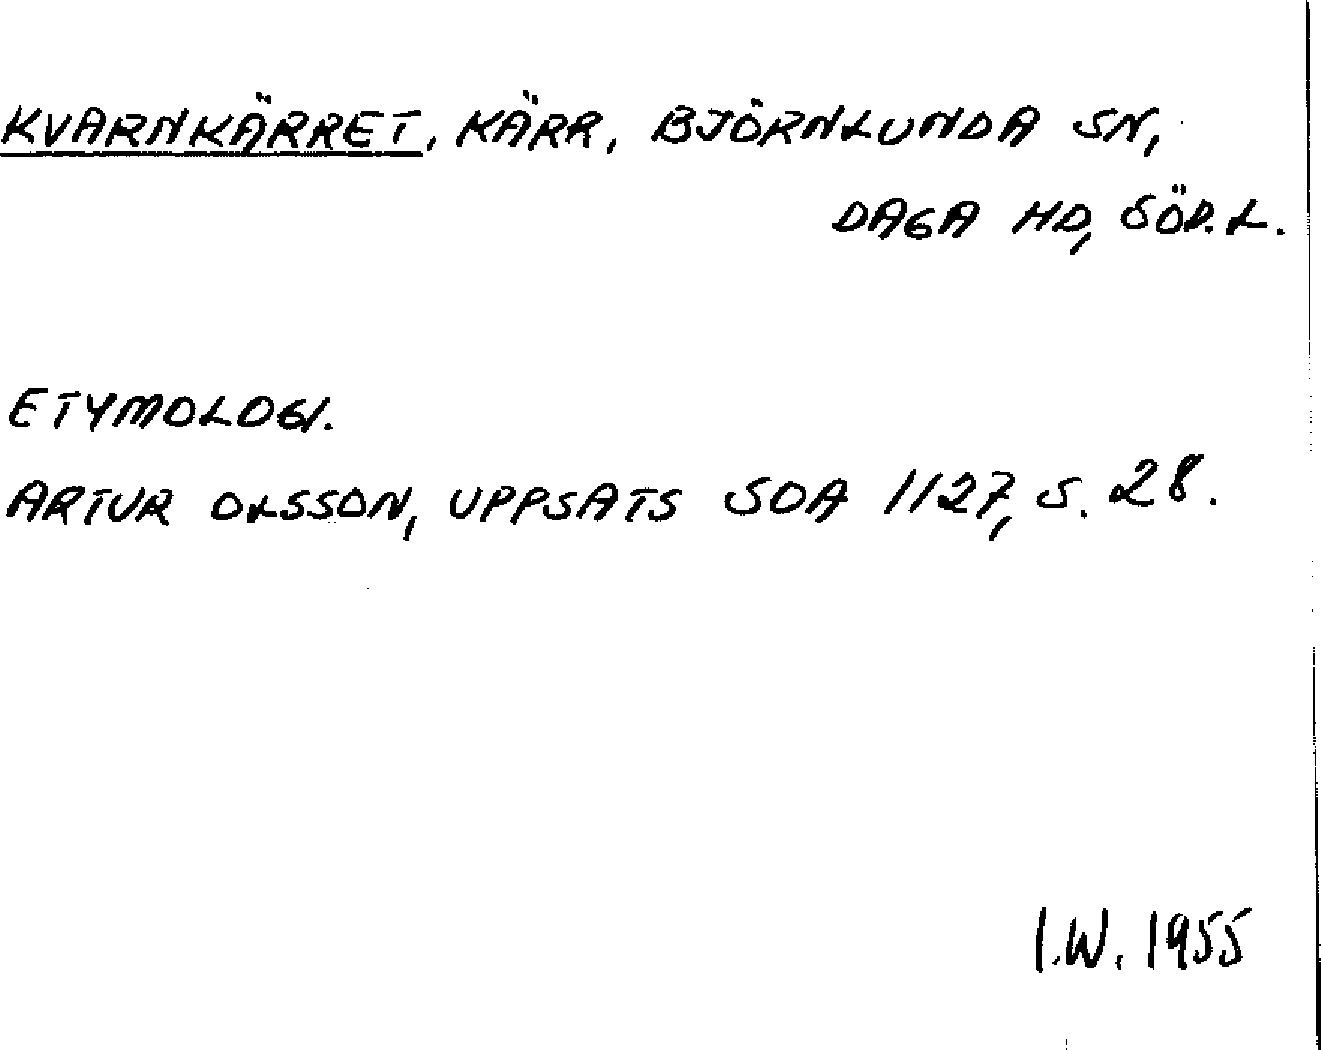 KVARNKÄRRET, KÄRR, BJÖRNLUNDA SN,
DAGA HD, SÖD.L.
ETYMOLOGI.
ARTUR OLSSON, UPPSATS SOA 1127, S. 28.
I.W. 1955